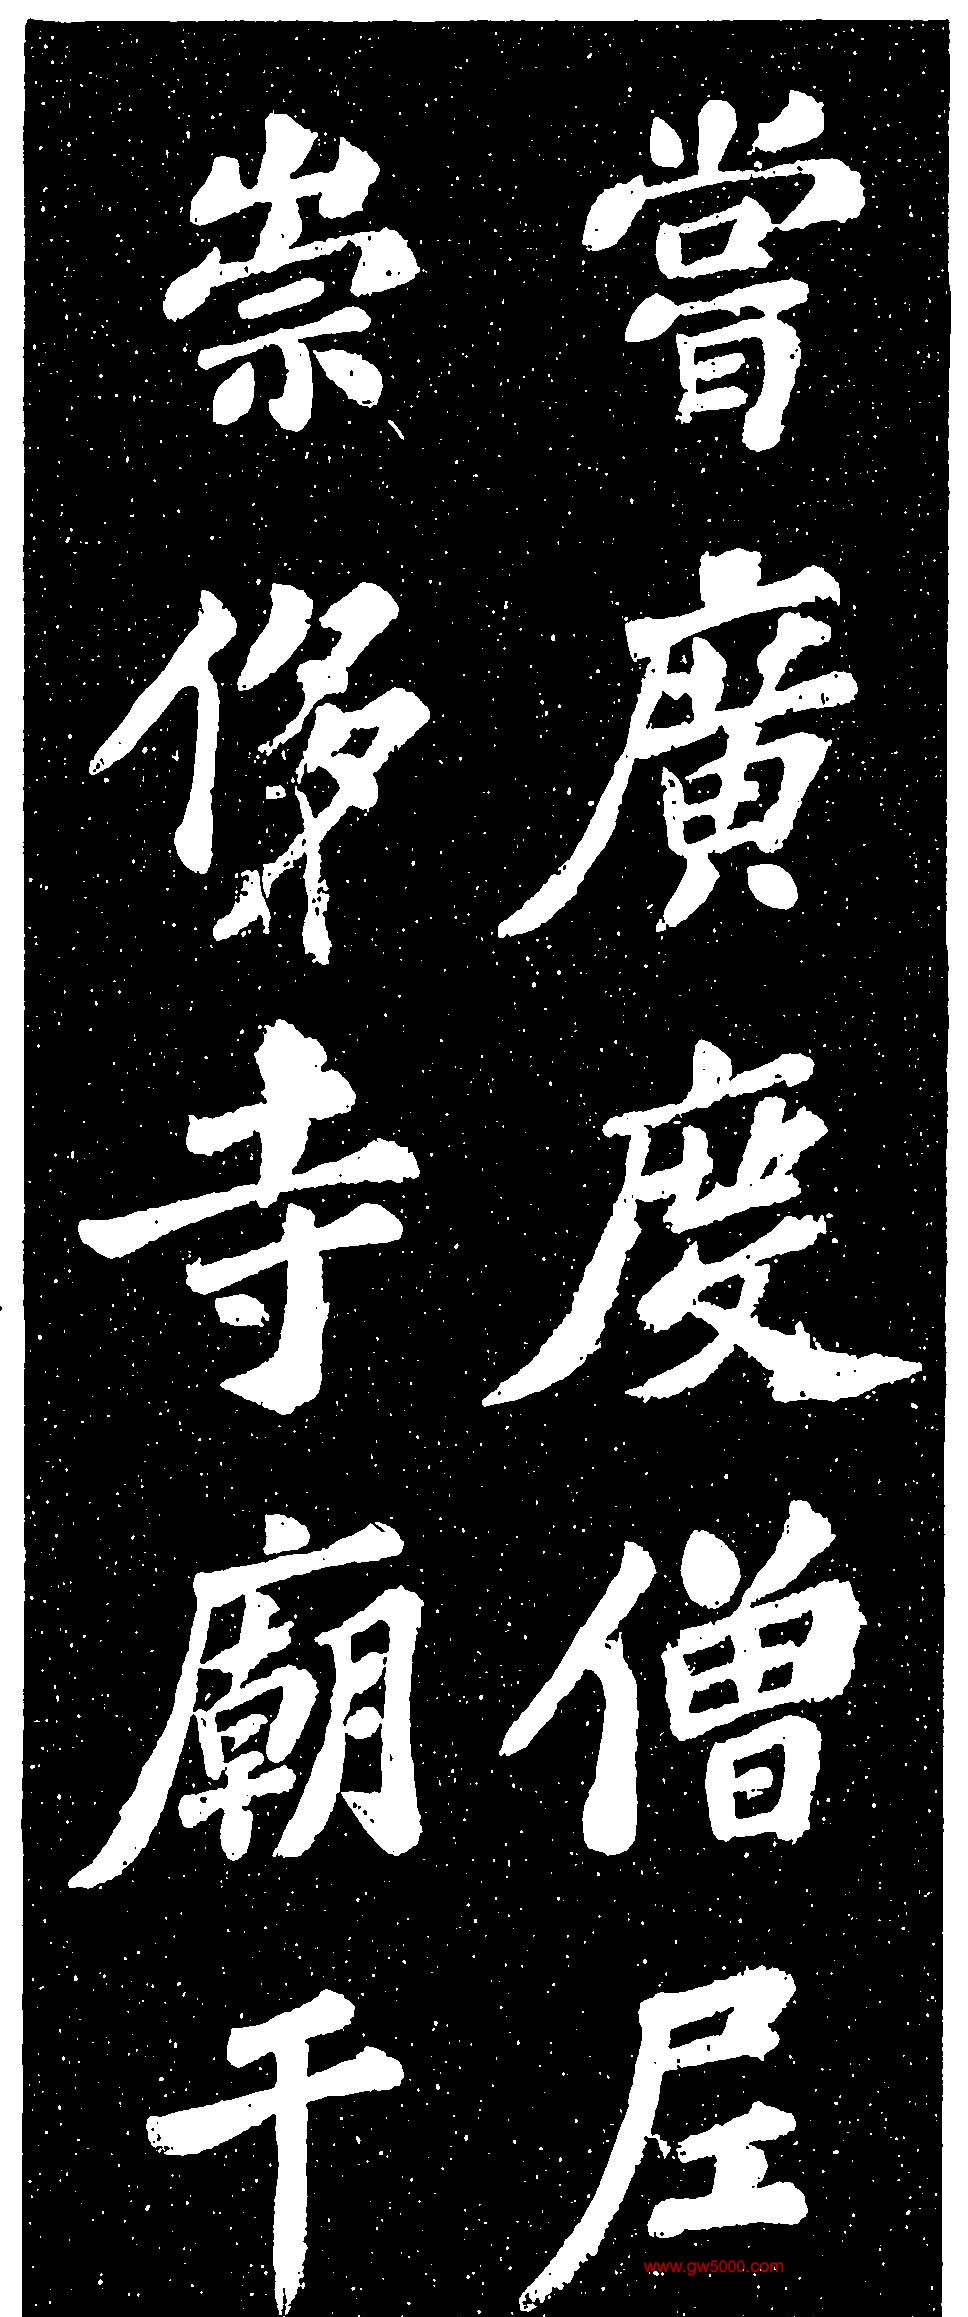 嘗廣度僧尼
崇修寺廟干
www.gw5000.com